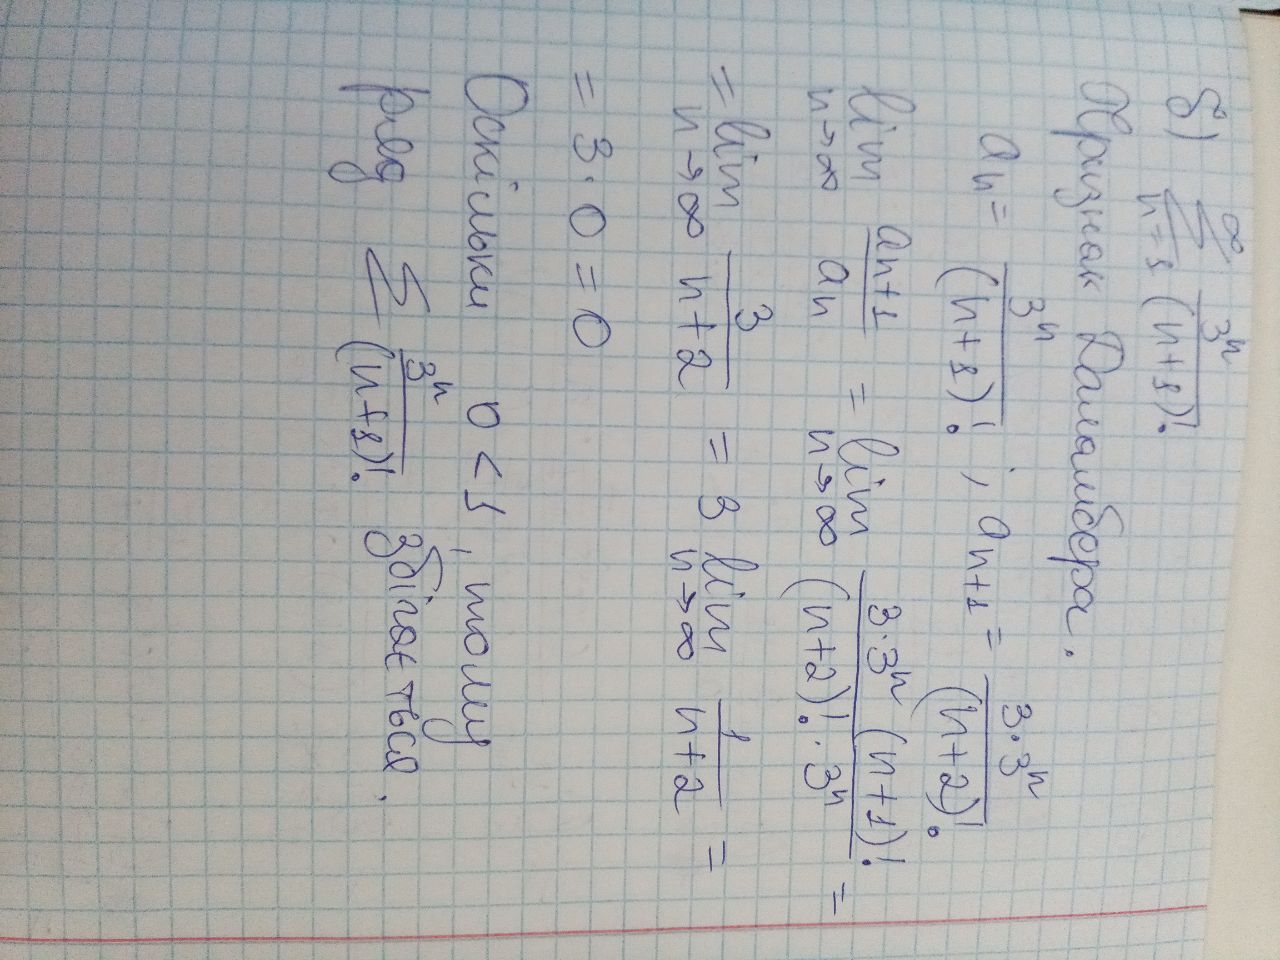 б) ∑_{n=1}^{∞} 3^n / (n+1)!
Признак Даламбера.
a_n = 3^n / (n+1)! ; a_{n+1} = 3·3^n / (n+2)!
lim_{n→∞} a_{n+1} / a_n = lim_{n→∞} 3·3^n (n+1)! / (n+2)!·3^n =
= lim_{n→∞} 3 / n+2 = 3 lim_{n→∞} 1 / n+2 =
= 3·0 = 0
Оскільки 0 < 1, тому
ряд ∑ 3^n / (n+1)! збігається.